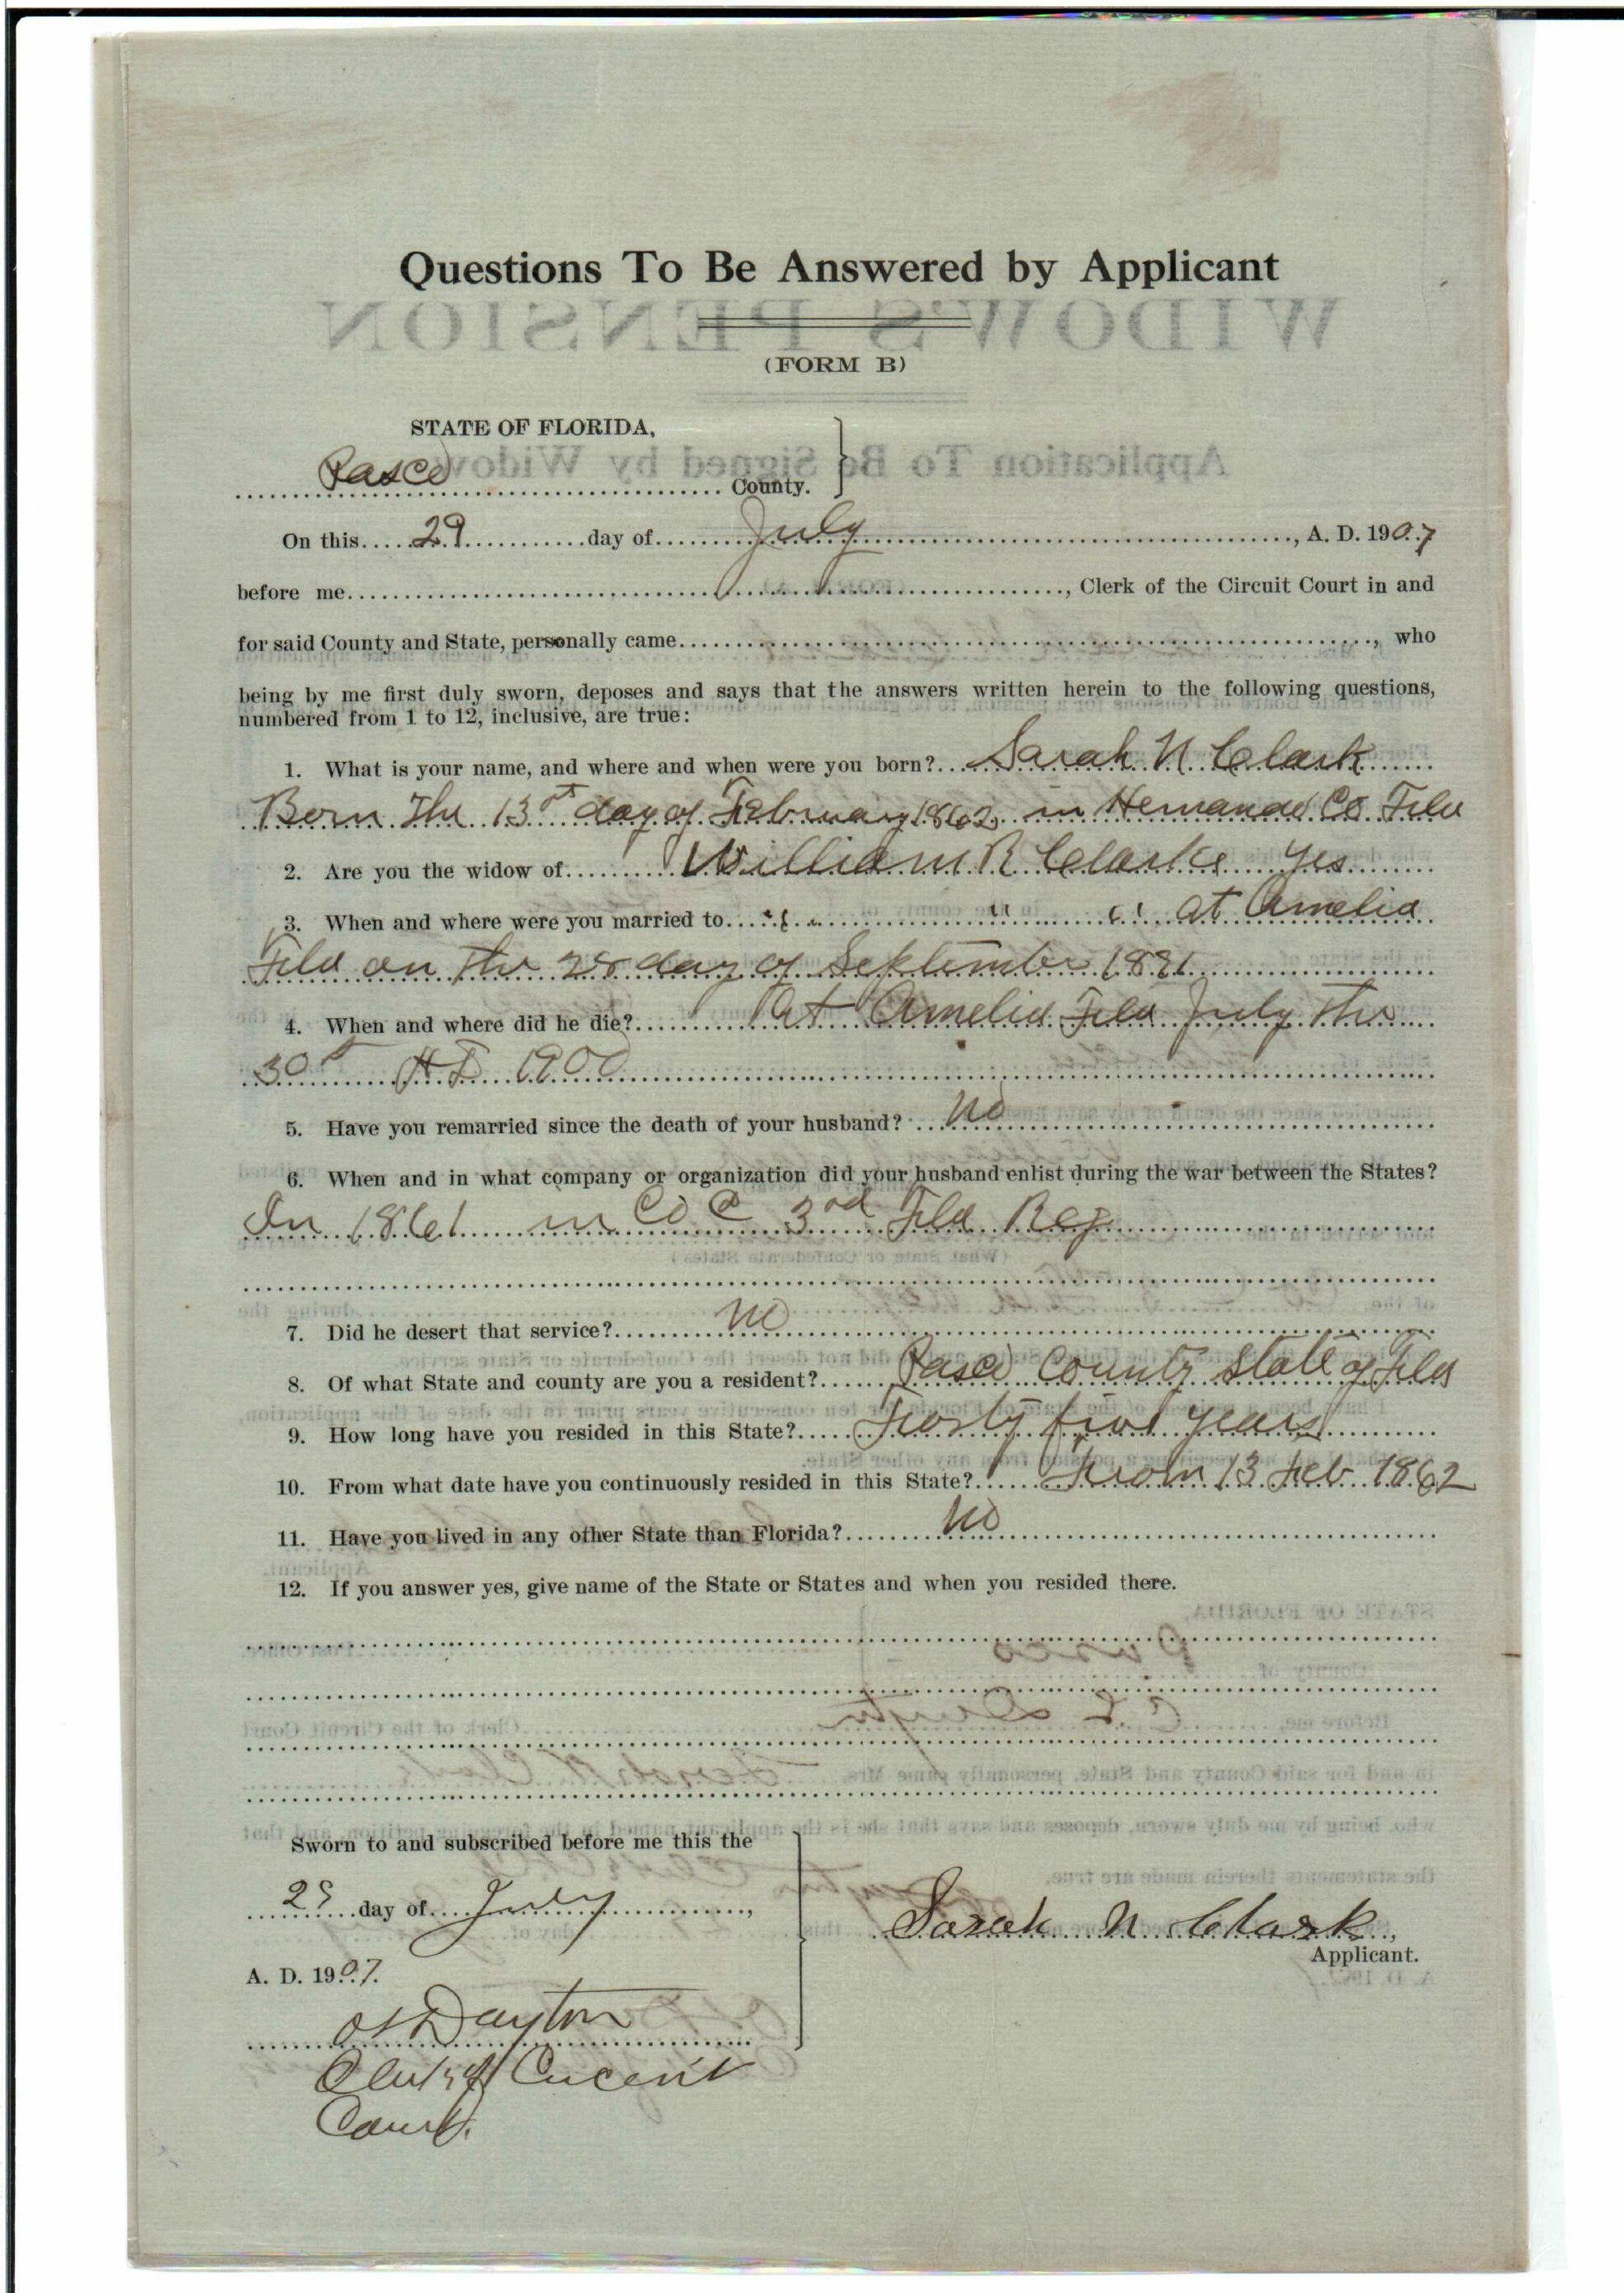 Questions To Be Answered by Applicant
WIDOW'S PENSION
(FORM B)
STATE OF FLORIDA,
Application To Be Signed by Widow
Pasco County.
On this 29 day of July, A. D. 1907
before me, Clerk of the Circuit Court in and
for said County and State, personally came, who
being by me first duly sworn, deposes and says that the answers written herein to the following questions,
numbered from 1 to 12, inclusive, are true:
1. What is your name, and where and when were you born? Sarah N Clark
Born The 13 day of February 1862 in Hernando Co Fla
2. Are you the widow of William R Clarke yes
3. When and where were you married to " " " at Amelia
Fla on the 28 day of September 1881
4. When and where did he die? At Amelia Fla July the
30 AD 1900
5. Have you remarried since the death of your husband? No
6. When and in what company or organization did your husband enlist during the war between the States?
In 1861 in Co C 3rd Fla Reg
7. Did he desert that service? No
8. Of what State and county are you a resident? Pasco County State of Fla
9. How long have you resided in this State? Forty five years
10. From what date have you continuously resided in this State? From 13 Feb 1862
11. Have you lived in any other State than Florida? No
12. If you answer yes, give name of the State or States and when you resided there.
Sworn to and subscribed before me this the
29 day of July,
Sarah N Clark,
Applicant.
A. D. 1907.
Dayton
Clerk of Circuit
Court.